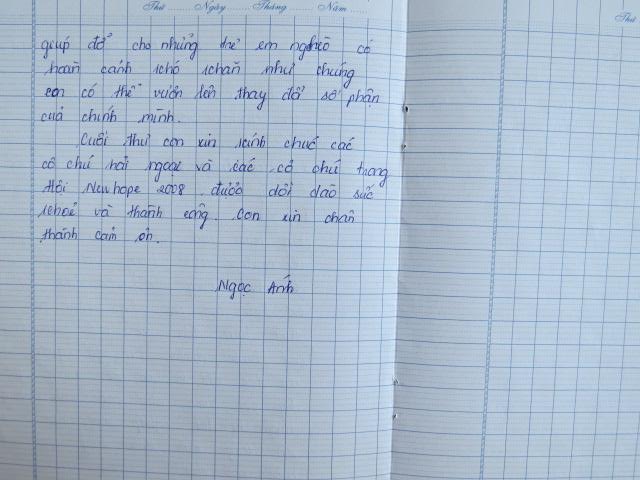 Thứ Ngày Tháng Năm
Thứ
giúp đỡ cho những trẻ em nghèo có
hoàn cảnh khó khăn như chúng
con có thể vươn lên thay đổi số phận
của chính mình.
Cuối thư con xin kính chúc các
cô chú hải ngoại và các cô chú trong
Hội Newhope 2008 được dồi dào sức
khoẻ và thành công. Con xin chân
thành cảm ơn.
Ngọc Ánh